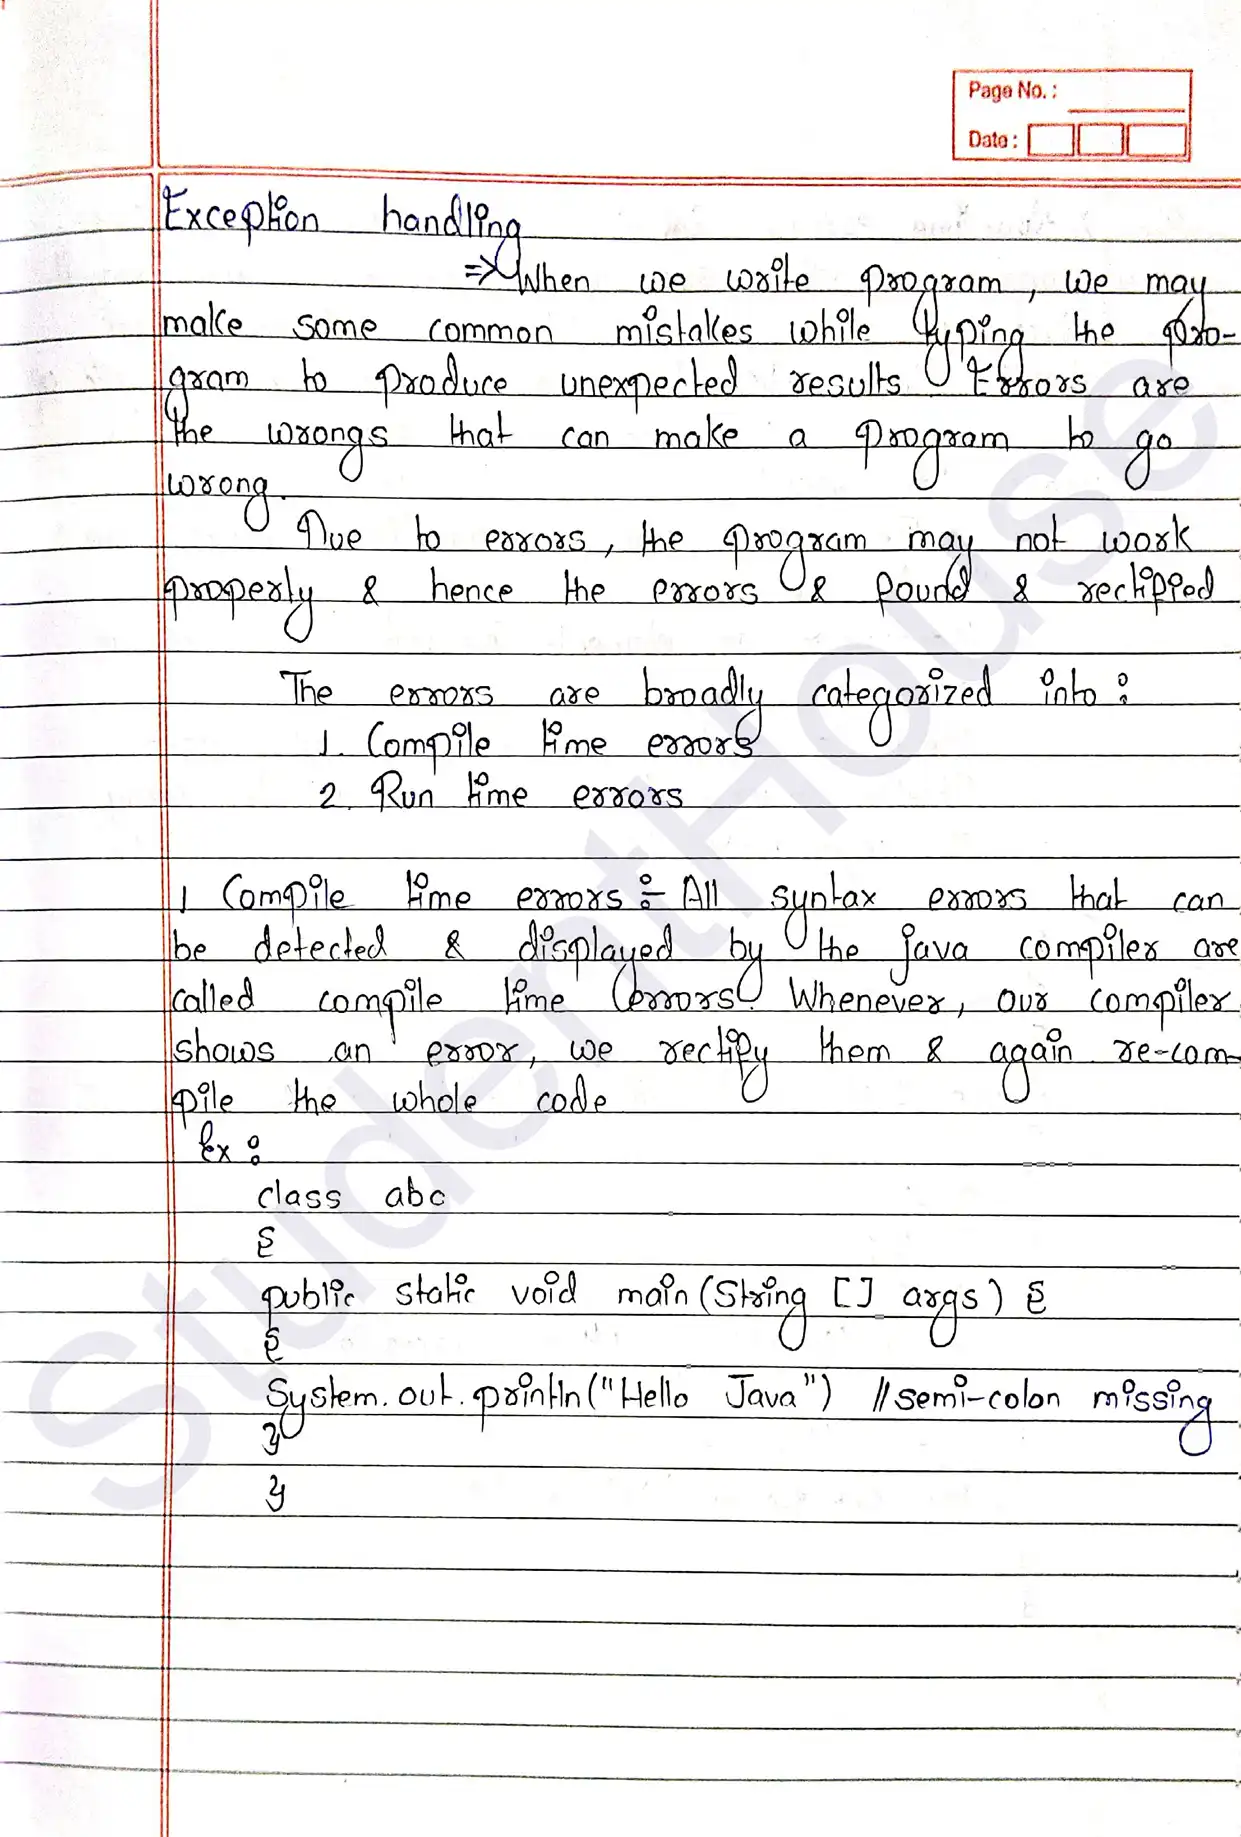 Page No. :
Date :
Exception handling
=> When we write program, we may
make some common mistakes while typing the pro-
gram to produce unexpected results Errors are
the wrongs that can make a program to go
wrong.
Due to errors, the program may not work
properly & hence the errors & found & rectified
The errors are broadly categorized into :
1. Compile time errors
2. Run time errors
1 Compile time errors :- All syntax errors that can
be detected & displayed by the java compiler are
called compile time errors. Whenever, our compiler
shows an error, we rectify them & again re-com-
pile the whole code
Ex :
class abc
{
public static void main (String [] args) {
{
System.out.println("Hello Java") //semi-colon missing
}
}
StudentHouse